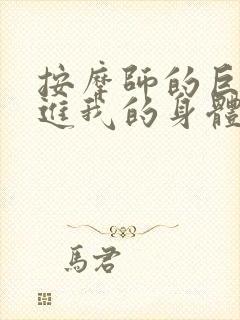 按摩師的巨
進我的身體
馬君